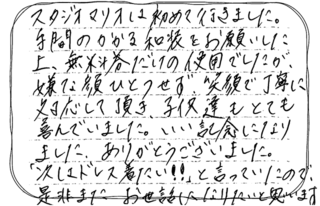 スタジオマリオは初めて行きました。
手間のかかる和装をお願いした
上、無料券だけの使用でしたが、
嫌な顔ひとつせず、笑顔で丁寧に
対応して頂き子供達もとても
喜んでいました。いい記念になり
ました、ありがとうございました。
「次はドレス着たい!!」と言っていたので、
是非また お世話になりたいと思います